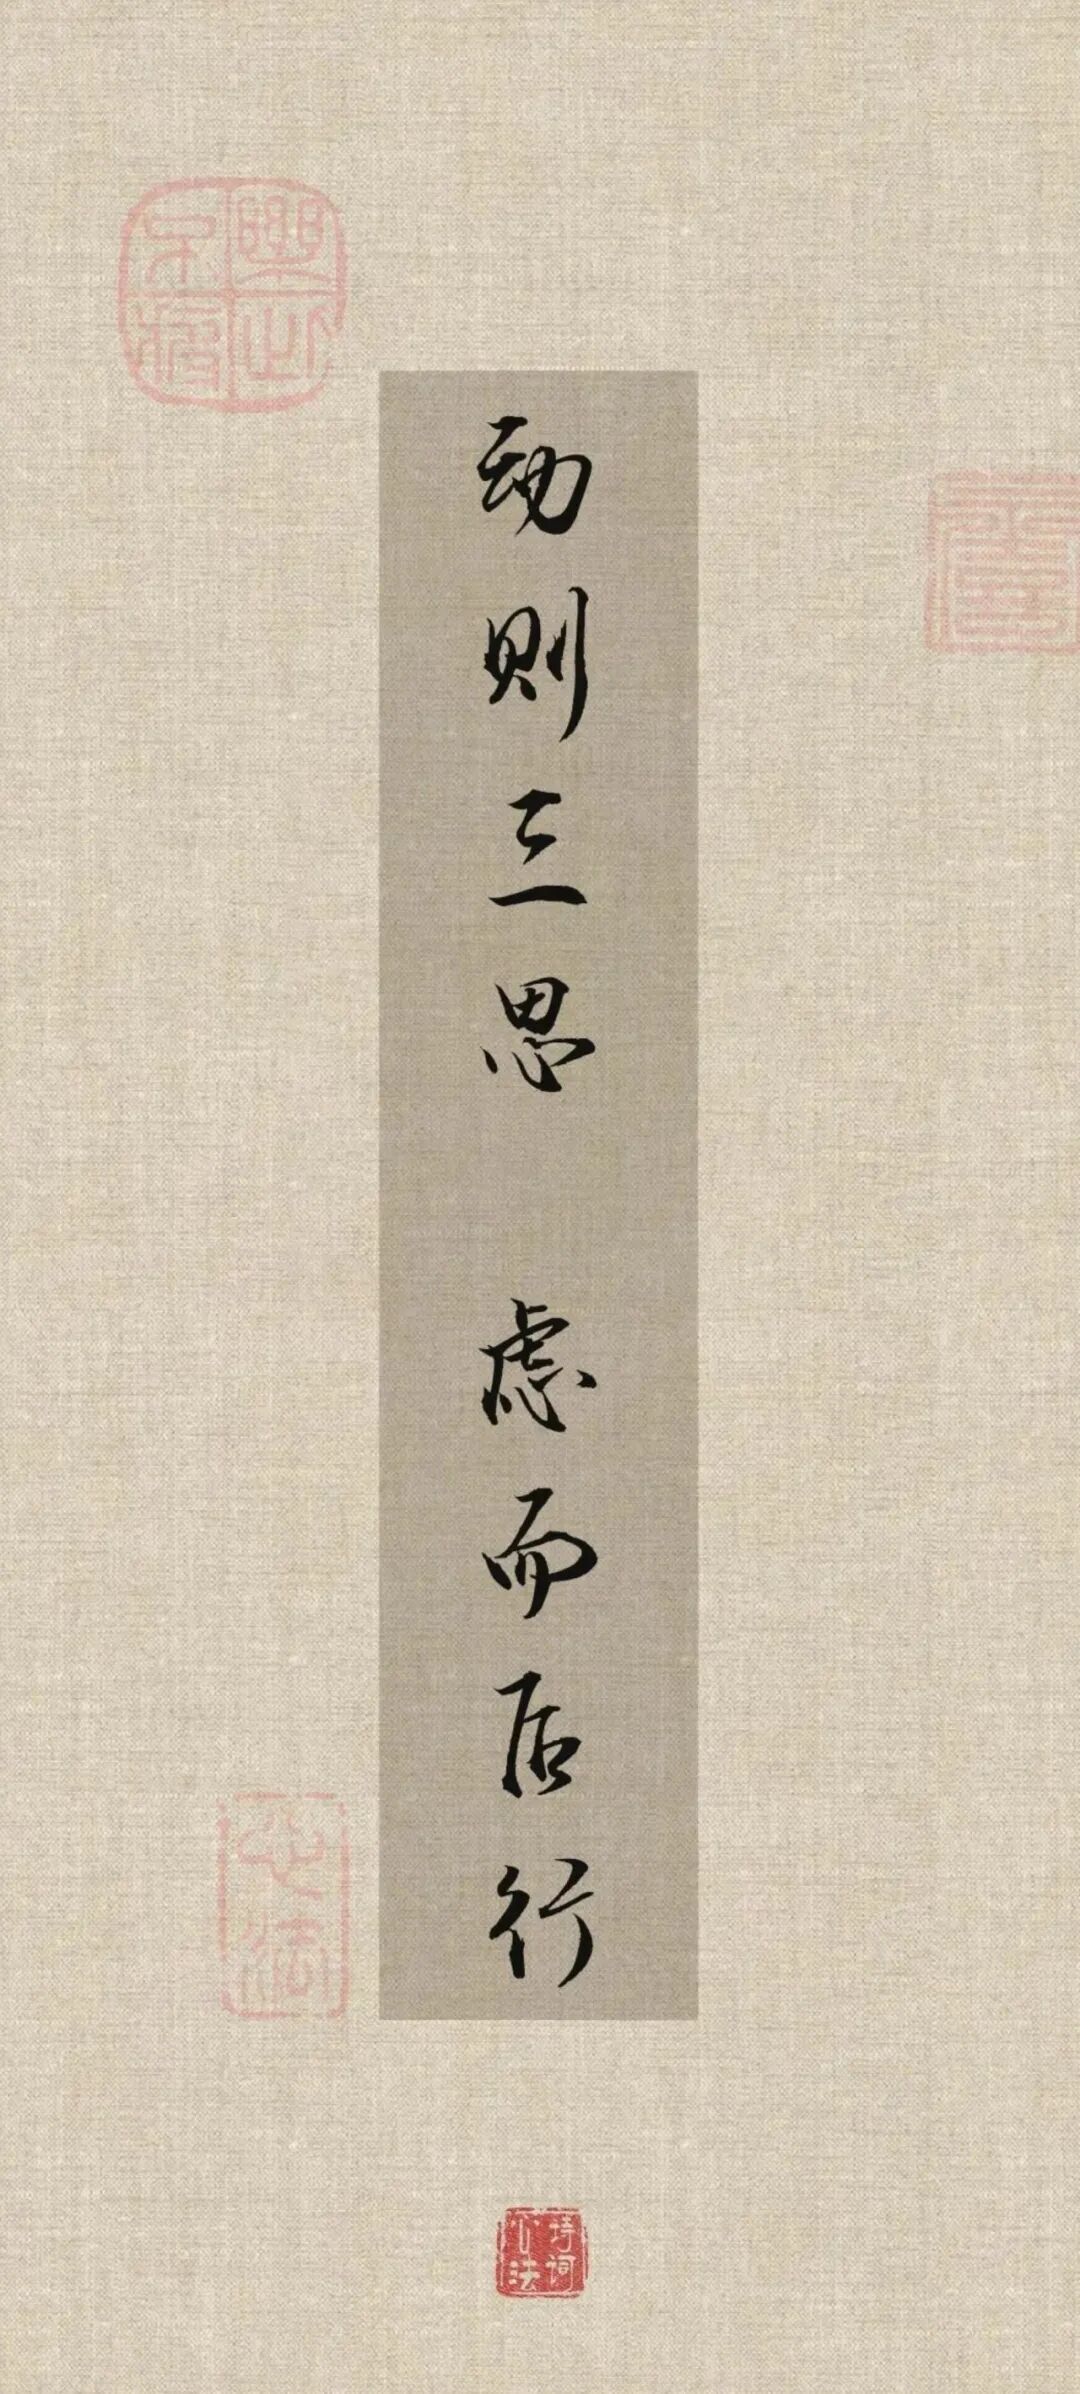 动则三思 虑而后行
诗词
心法